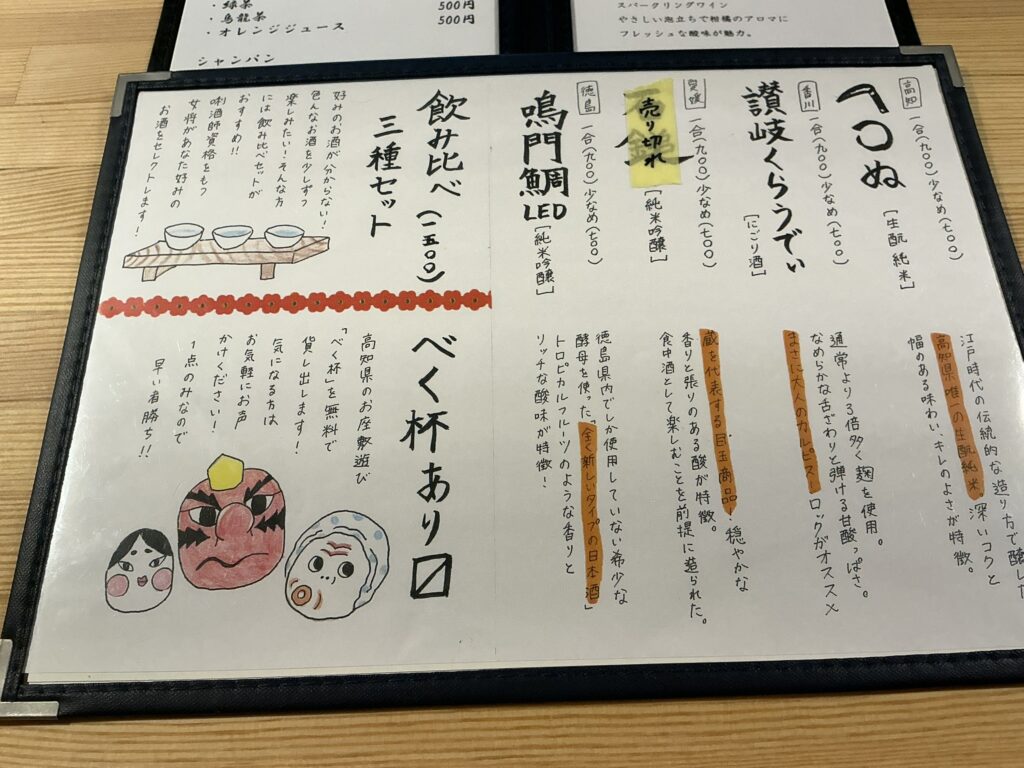 ・緑茶 500円
・烏龍茶 500円
・オレンジジュース
シャンパン
スパークリングワイン
やさしい泡立ちで柑橘のアロマに
フレッシュな酸味が魅力。
高知
一合(九〇〇) 少なめ(七〇〇)
[生酛純米]
江戸時代の伝統的な造り方で醸した
高知県唯一の生酛純米。深いコクと
幅のある味わい、キレのよさが特徴。
香川
一合(九〇〇) 少なめ(七〇〇)
讃岐くらうでぃ
[にごり酒]
通常より3倍多く麹を使用。
なめらかな舌ざわりと弾ける甘酸っぱさ。
まさに大人のカルピス!ロックがオススメ
愛媛
一合(九〇〇) 少なめ(七〇〇)
売り切れ
[純米吟醸]
蔵を代表する目玉商品!穏やかな
香りと張りのある酸が特徴。
食中酒として楽しむことを前提に造られた。
徳島
一合(九〇〇) 少なめ(七〇〇)
鳴門鯛
LED
[純米吟醸]
徳島県内でしか使用していない希少な
酵母を使った「全く新しいタイプの日本酒」
トロピカルフルーツのような香りと
リッチな酸味が特徴!
飲み比べ(一五〇〇)
三種セット
好みのお酒が分からない!
色んなお酒を少しずつ
楽しみたい!そんな方
には飲み比べセットが
おすすめ!!
唎酒師資格をもつ
女将があなた好みの
お酒をセレクトします!
べく杯あり〼
高知県のお座敷遊び
「べく杯」を無料で
貸し出します!
気になる方は
お気軽にお声
かけください!
1点のみなので
早い者勝ち!!